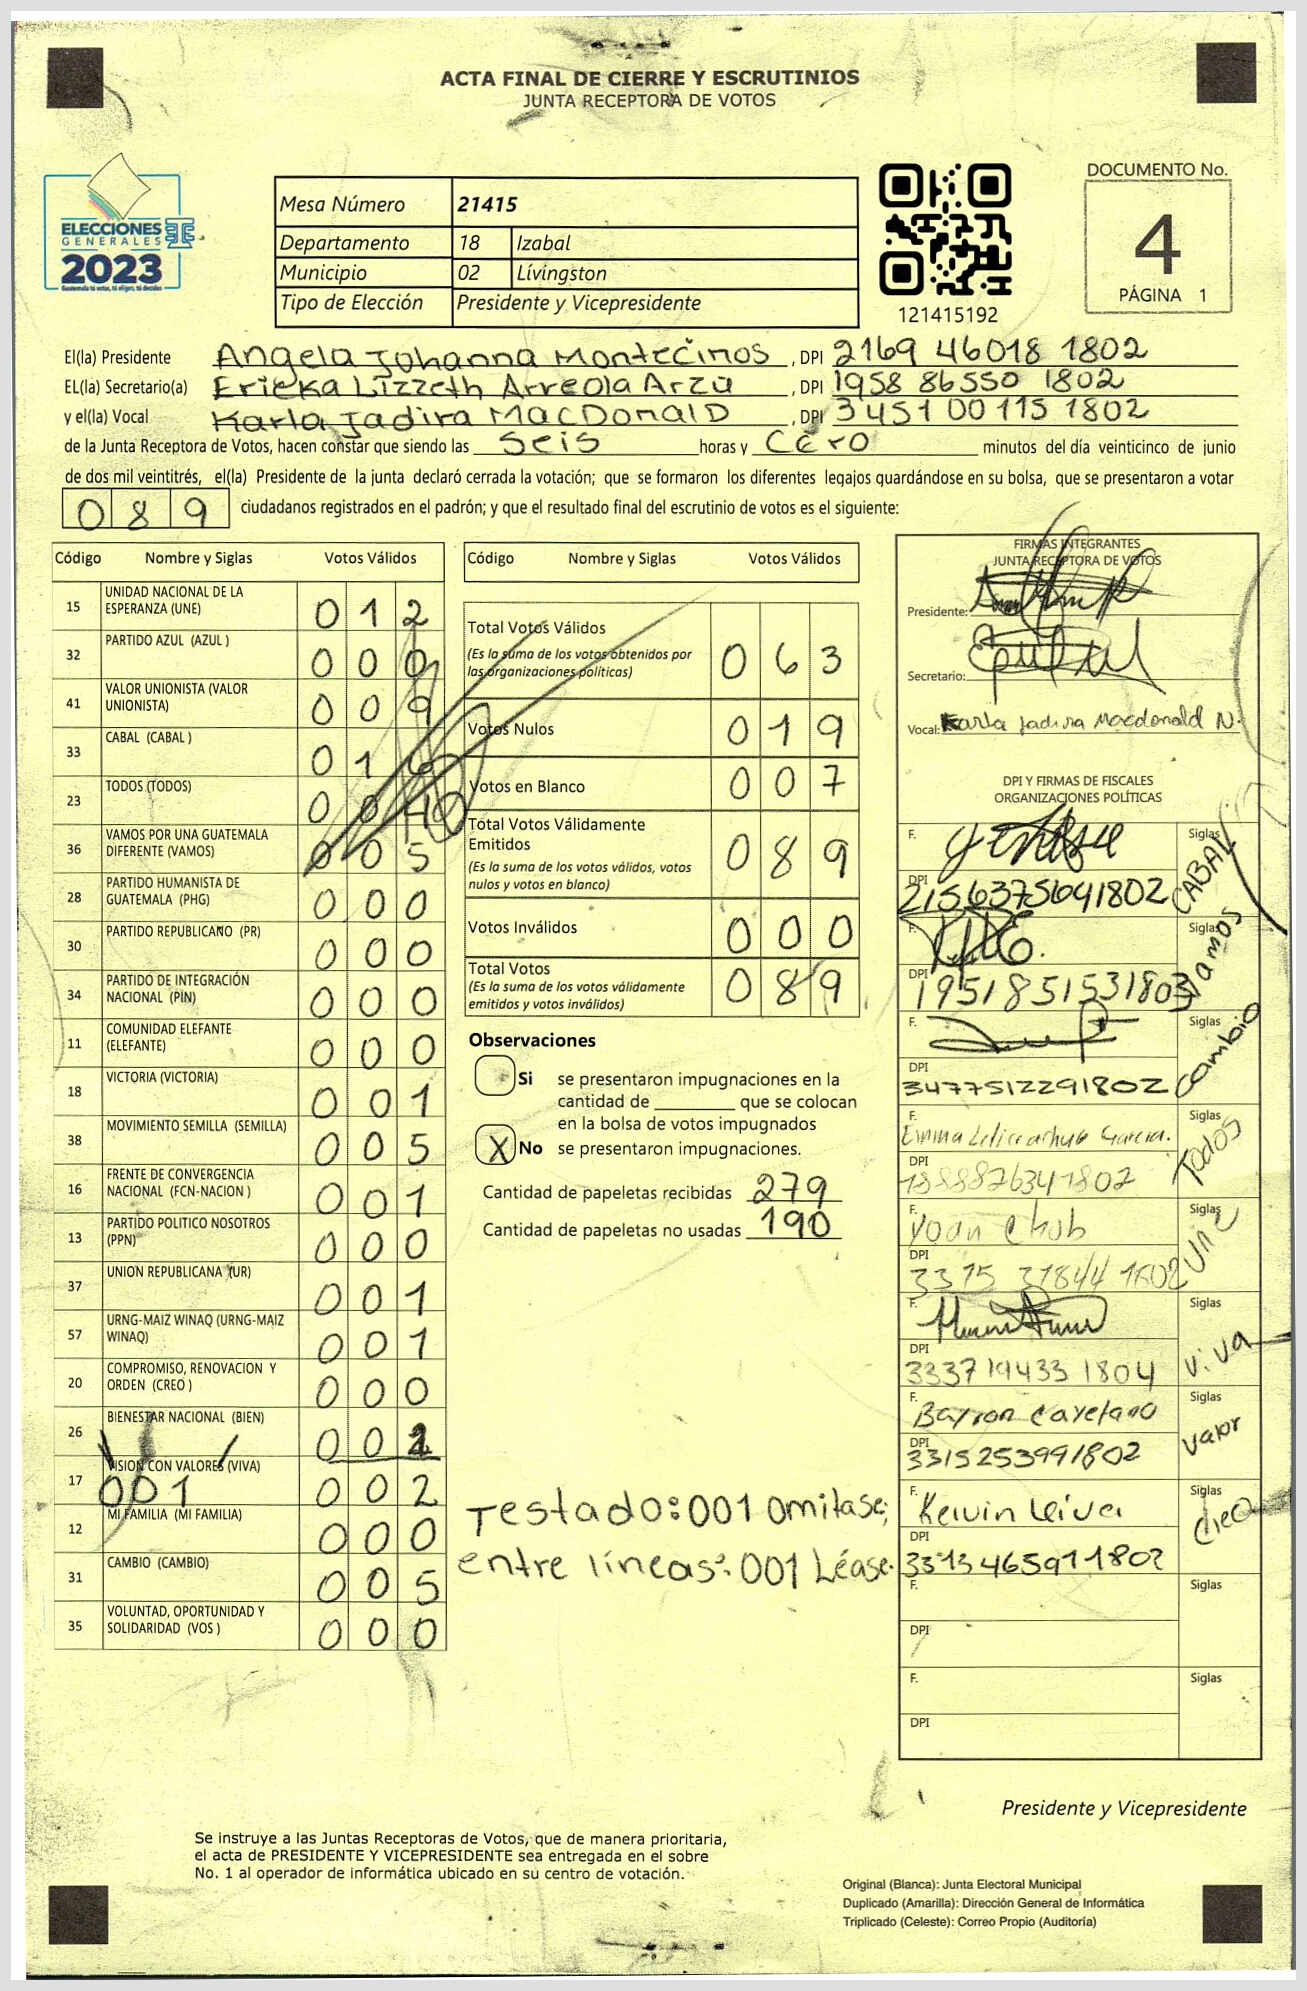 ACTA FINAL DE CIERRE Y ESCRUTINIOS
JUNTA RECEPTORA DE VOTOS
ELECCIONES
GENERALES
2023
Guatemala tú votas, tú eliges, tú decides
Mesa Número 21415
Departamento 18 Izabal
Municipio 02 Lívingston
Tipo de Elección Presidente y Vicepresidente
121415192
DOCUMENTO No.
4
PÁGINA 1
El(la) Presidente Angela Johanna Montecinos , DPI 2169 46018 1802
EL(la) Secretario(a) Ericka Lizzeth Arreola Arzú , DPI 1958 86550 1802
y el(la) Vocal Karla Jadira MacDonald , DPI 3451 00115 1802
de la Junta Receptora de Votos, hacen constar que siendo las seis horas y cero minutos del día veinticinco de junio
de dos mil veintitrés, el(la) Presidente de la junta declaró cerrada la votación; que se formaron los diferentes legajos guardándose en su bolsa, que se presentaron a votar
089 ciudadanos registrados en el padrón; y que el resultado final del escrutinio de votos es el siguiente:
Código Nombre y Siglas Votos Válidos
15 UNIDAD NACIONAL DE LA ESPERANZA (UNE) 012
32 PARTIDO AZUL (AZUL ) 000
41 VALOR UNIONISTA (VALOR UNIONISTA) 009
33 CABAL (CABAL ) 016
23 TODOS (TODOS) 004
36 VAMOS POR UNA GUATEMALA DIFERENTE (VAMOS) 005
28 PARTIDO HUMANISTA DE GUATEMALA (PHG) 000
30 PARTIDO REPUBLICANO (PR) 000
34 PARTIDO DE INTEGRACIÓN NACIONAL (PIN) 000
11 COMUNIDAD ELEFANTE (ELEFANTE) 000
18 VICTORIA (VICTORIA) 001
38 MOVIMIENTO SEMILLA (SEMILLA) 005
16 FRENTE DE CONVERGENCIA NACIONAL (FCN-NACION ) 001
13 PARTIDO POLITICO NOSOTROS (PPN) 000
37 UNION REPUBLICANA (UR) 001
57 URNG-MAIZ WINAQ (URNG-MAIZ WINAQ) 001
20 COMPROMISO, RENOVACION Y ORDEN (CREO ) 000
26 BIENESTAR NACIONAL (BIEN) 00
001
17 VISION CON VALORES (VIVA) 002
12 MI FAMILIA (MI FAMILIA) 000
31 CAMBIO (CAMBIO) 005
35 VOLUNTAD, OPORTUNIDAD Y SOLIDARIDAD (VOS ) 000
Código Nombre y Siglas Votos Válidos
Total Votos Válidos 063
(Es la suma de los votos obtenidos por
las organizaciones políticas)
Votos Nulos 019
Votos en Blanco 007
Total Votos Válidamente
Emitidos 089
(Es la suma de los votos válidos, votos
nulos y votos en blanco)
Votos Inválidos 000
Total Votos 089
(Es la suma de los votos válidamente
emitidos y votos inválidos)
Observaciones
Si se presentaron impugnaciones en la
cantidad de ________ que se colocan
en la bolsa de votos impugnados
X No se presentaron impugnaciones.
Cantidad de papeletas recibidas 279
Cantidad de papeletas no usadas 190
Testado: 001 Omitase;
entre líneas: 001 Léase.
FIRMAS INTEGRANTES
JUNTA RECEPTORA DE VOTOS
Presidente:
Secretario:
Vocal: Karla Jadira Macdonald N.
DPI Y FIRMAS DE FISCALES
ORGANIZACIONES POLÍTICAS
F. Siglas CABAL
DPI 2156375641802
F. Siglas Vamos
DPI 1951851531803
F. Siglas Cambio
DPI 3477512291802
F. Emma Garcia. Siglas Todos
DPI 1888826341802
F. Yoan Chub Siglas UNE
DPI 3315 31844 1802
F. Siglas Viva
DPI 3337194331804
F. Bayron Cayetano Siglas Valor
DPI 3315253991802
F. Kelvin Leiva Siglas Creo
DPI 3313465911802
F. Siglas
DPI
F. Siglas
DPI
Presidente y Vicepresidente
Se instruye a las Juntas Receptoras de Votos, que de manera prioritaria,
el acta de PRESIDENTE Y VICEPRESIDENTE sea entregada en el sobre
No. 1 al operador de informática ubicado en su centro de votación.
Original (Blanca): Junta Electoral Municipal
Duplicado (Amarilla): Dirección General de Informática
Triplicado (Celeste): Correo Propio (Auditoría)